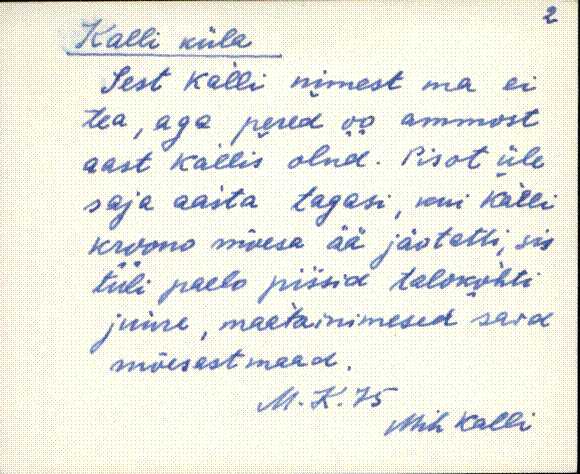 2
Kalli küla
Sest Kalli nimest ma ei
tea, aga pered oo ammost
aast Kallis olnd. Pisot üle
saja aasta tagasi, kui Kalli
kroono mõesa ää jäotatti, siis
tuli paelo piśsid talokohti
juure, maatainimesed said
mõesast maad.
M. K. 75
Mih Kalli